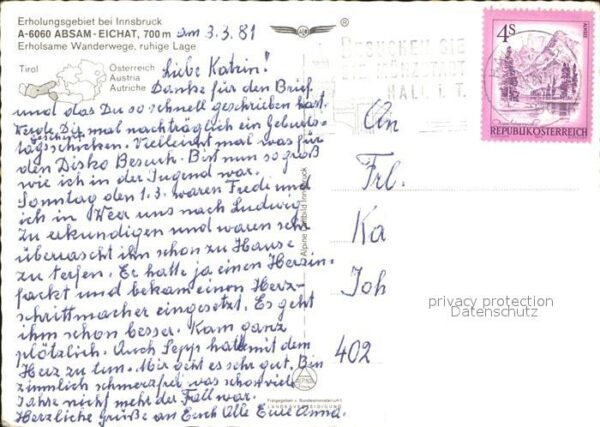 Erholungsgebiet bei Innsbruck
A-6060 ABSAM - EICHAT, 700 m
am 3.3.81
Erholsame Wanderwege, ruhige Lage
Tirol
Österreich
Austria
Autriche
Liebe Katrin!
Danke für den Brief
und das Du so schnell geschrieben hast.
Werde Dir mal nachträglich ein Geburts-
tagsgeschenk schicken. Vielleicht mal was für
den Disko Besuch. Bist nun so groß
wie ich in der Jugend war.
Sonntag den 1.3. waren Frede und
ich in Weer uns nach Ludwig
zu erkundigen und waren sehr
überrascht ihn schon zu Hause
zu treffen. Er hatte ja einen Herzin-
fackt und bekam einen Herz-
schrittmacher eingesetzt. Es geht
ihm schon besser. Kam ganz
plötzlich. Auch Sepp hat es mit dem
Herz zu tun. Mir geht es sehr gut. Bin
zimmlich schmerzfrei was schon viele
Jahre nicht mehr der Fall war.
Herzliche Grüße an Euch Alle Eure Anna.
®
BESUCHEN SIE
DIE MÜNZSTADT
HALL i. T.
4 S
REPUBLIK ÖSTERREICH
An
Frl.
Ka
Joh
402
privacy protection
Datenschutz
Alpine Luftbild Innsbruck
Freigegeben v. Bundesministerium f.
LANDESVERTEIDIGUNG